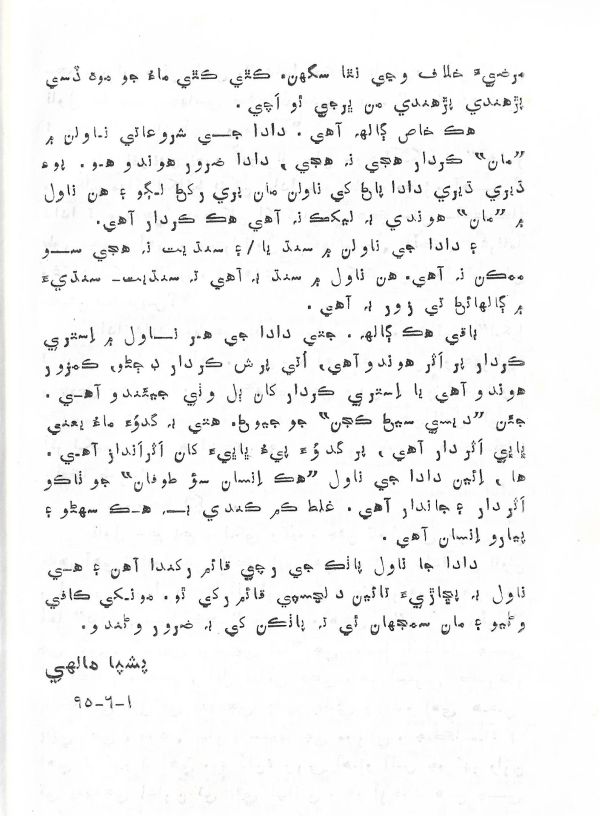 مرضيءَ خلاف وڃي نٿا سگهن. ڪٿي ڪٿي ماءُ جو موهه ڏسي
پڙهندي پڙهندي من ڀرجي ٿو اَچي .
هڪ خاص ڳالهه آهي . دادا جي شروعاتي ناولن ۾
”مان“ ڪردار هجي نه هجي ، دادا ضرور هوندو هو . پوءِ
ڌيري ڌيري دادا پاڻ کي ناولن مان پري رکڻ لڳو ۽ هن ناول
۾ ”مان“ هوندي به ليکڪ نه آهي هڪ ڪردار آهي.
۽ دادا جي ناولن ۾ سنڌ يا/۽ سنڌيت نه هجي سو
ممڪن نه آهي. هن ناول ۾ سنڌ به آهي ته سنڌيت- سنڌيءَ
۾ ڳالهائڻ تي زور به آهي .
باقي هڪ ڳالهه . جتي دادا جي هر ناول ۾ اِستري
ڪردار پر اَثر هوندو آهي، اُتي پرش ڪردار ڊڄڻو، ڪمزور
هوندو آهي يا اِستري ڪردار کان ٻل وٺي جيئندو آهي .
جئن ”ديسي سيڻ ڪجن“ جو جيوڻ. هتي به گدوءَ ماءُ يعني
ڀاڀي اَثردار آهي ، پر گدوُءَ پيءُ ڀاڀيءَ کان اَثرانداز آهي .
ها ، اِئين دادا جي ناول ”هڪ اِنسان سؤ طوفان“ جو ٺاڪو
اَثردار ۽ جاندار آهي . غلط ڪم ڪندي به هڪ سهڻو ۽
پيارو اِنسان آهي .
دادا جا ناول پاٺڪ جي رچي قائم رکندا آهن ۽ هي
ناول به پڇاڙيءَ تائين دلچسپي قائم رکي ٿو. مونکي ڪافي
وڻيو ۽ مان سمجهان ٿي ته پاٺڪن کي به ضرور وڻندو.
پشپا مالهي
۱-٦-۹۵